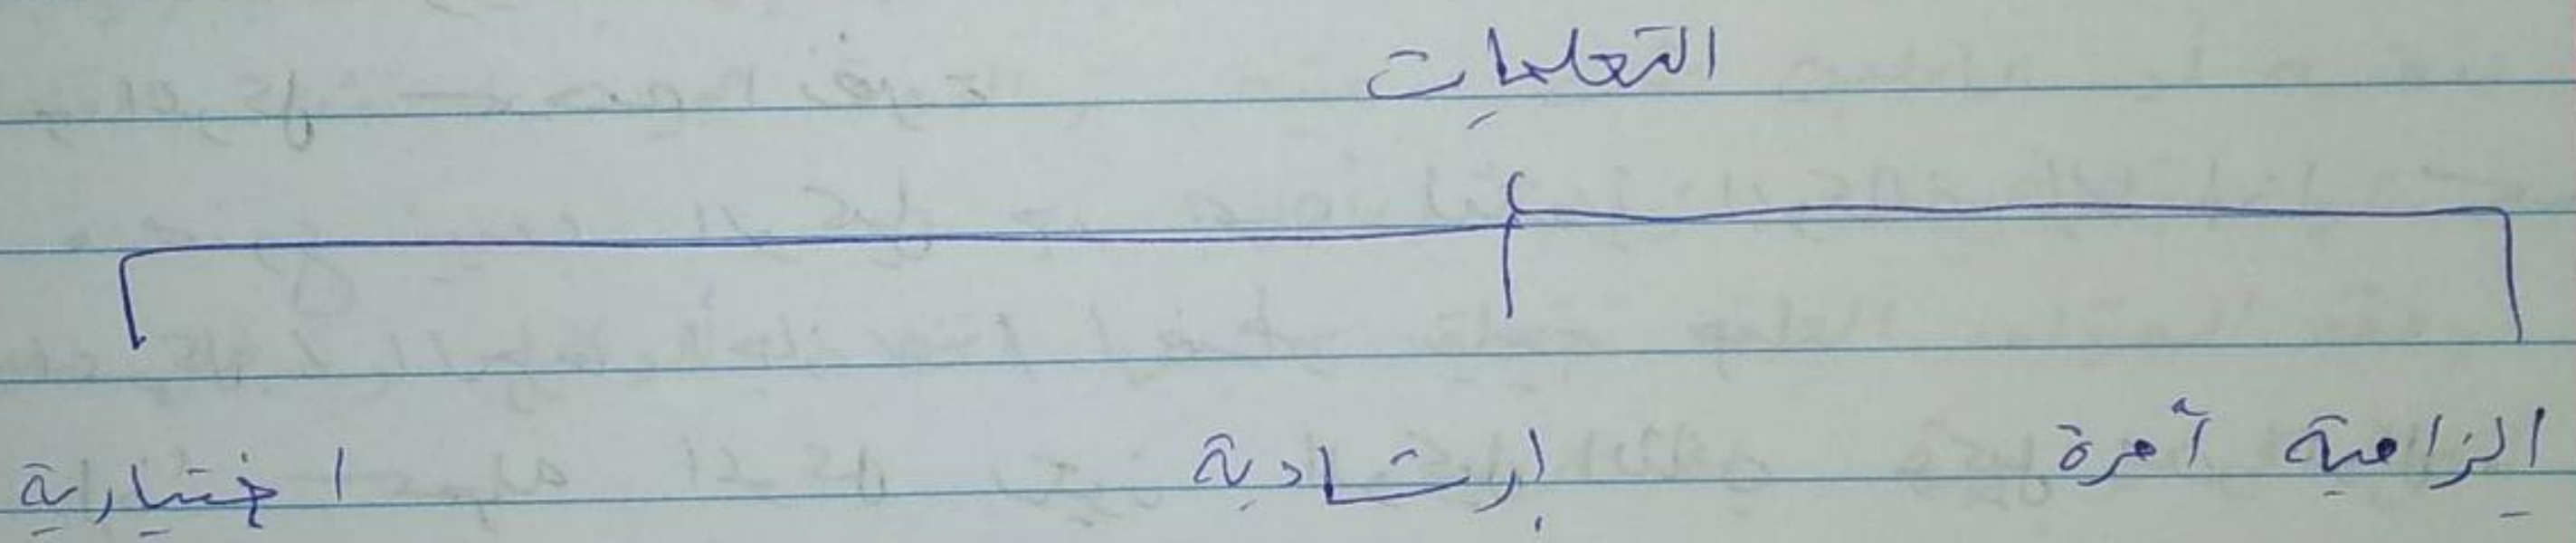 التعليمات
إلزامية آمرة إرشادية اختيارية